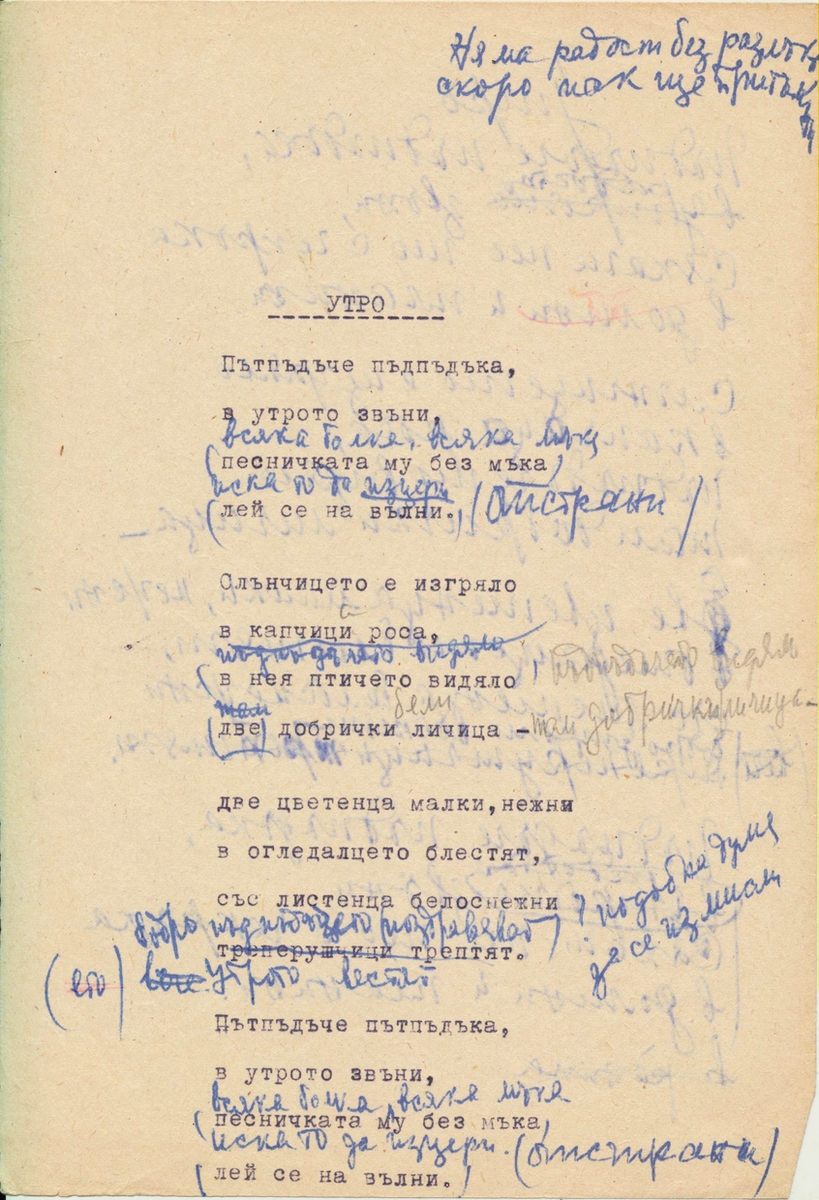 Няма радост без разлъка
скоро пак ще
УТРО
Пътпъдъче пъдпъдъка,
в утрото звъни,
всяка болка, всяка мъка
(песничката му без мъка)
иска то да изцери
(лей се на вълни.) (отстрани)
Слънчицето е изгряло
в капчици роса,
пъдпъдъчето видяло
(в нея птичето видяло пъдпъдъчето видял
там бели
(две) добрички личица – там добрички личица –
две цветенца малки,нежни
в огледалцето блестят,
със листенца белоснежни
? подобна дума
да се измисли
добро пъдпъдъчето поздравяват
треперушчици трептят.
(его) утрото вестят
Пътпъдъче пътпъдъка,
в утрото звъни,
всяка болка, всяка мъка
(песничката му без мъка)
иска то да изцери. (отстрани)
(лей се на вълни.)